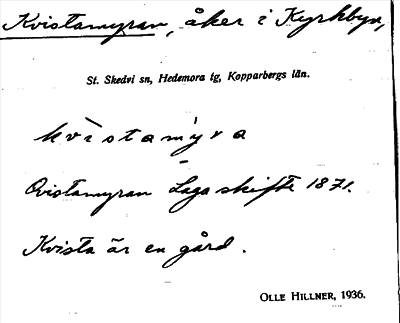 Kvistamyran, åker i Kyrkbyn,
St. Skedvi sn, Hedemora tg, Kopparbergs län.
kvìstamy̍ra
Qvistamyran Laga skifte 1871.
Kvista är en gård.
OLLE HILLNER, 1936.